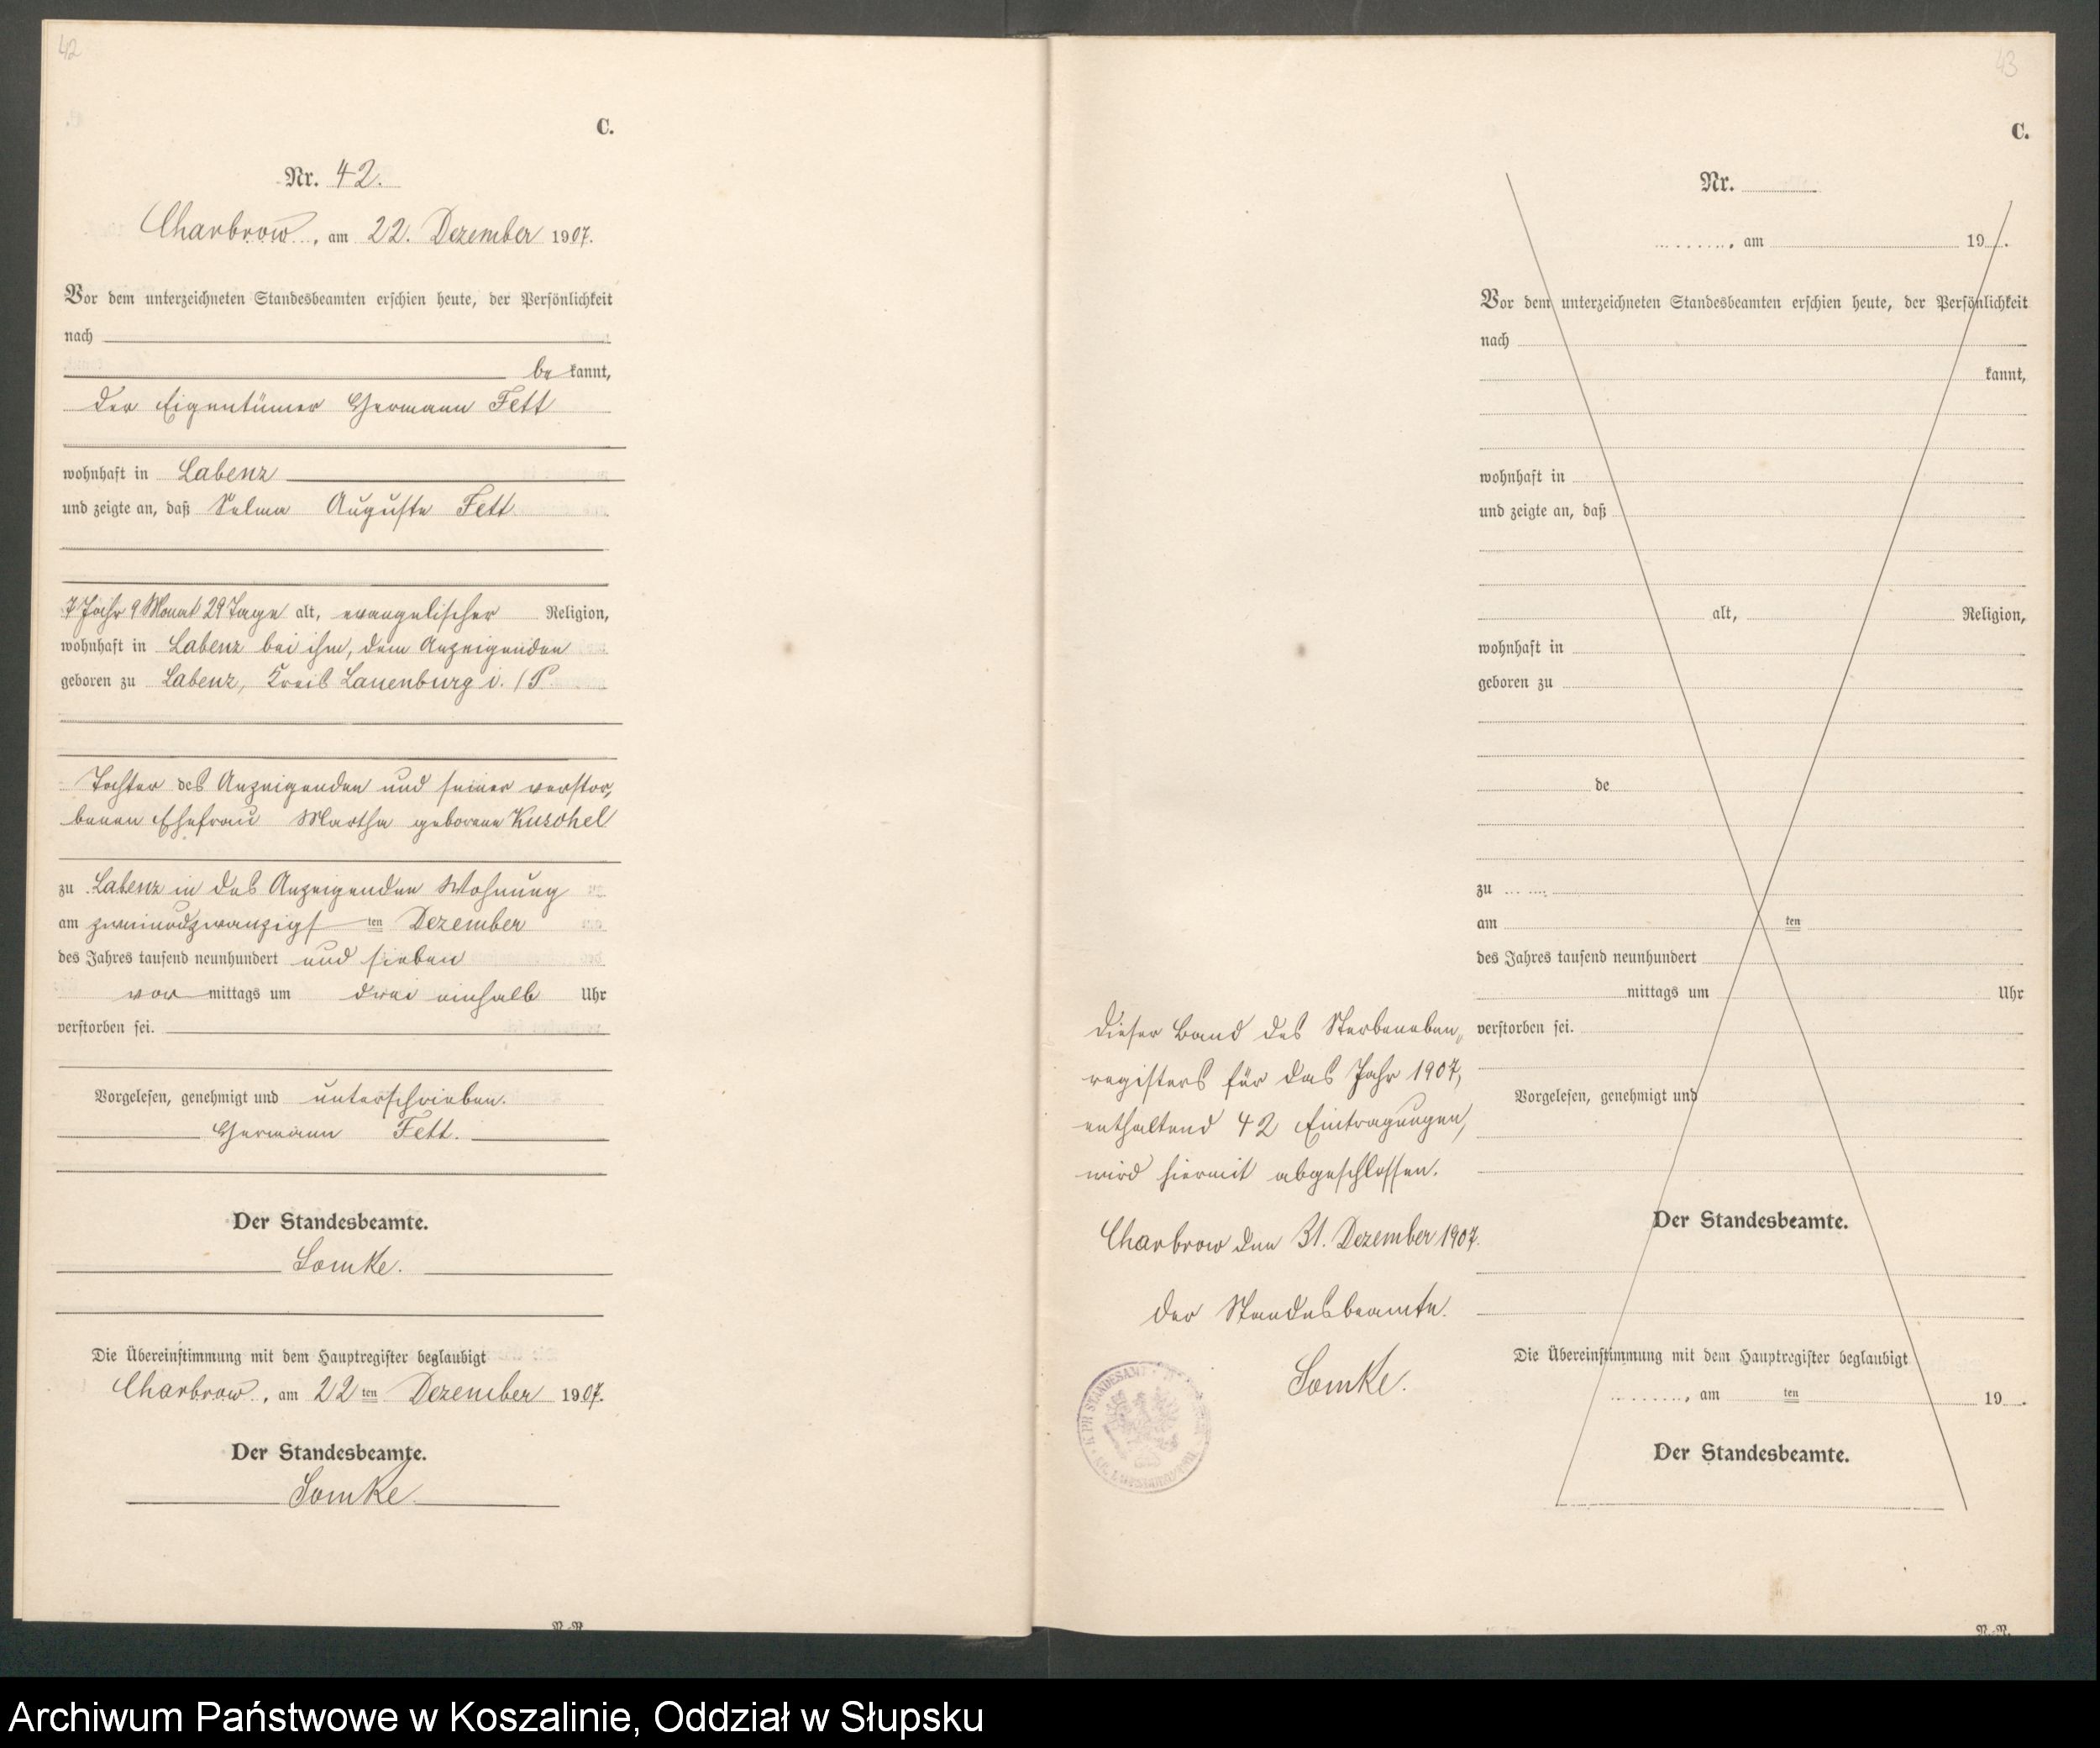 42
C.
Nr. 42.
Charbrow, am 22. Dezember 1907.
Vor dem unterzeichneten Standesbeamten erschien heute, der Persönlichkeit
nach
be kannt,
der Eigentümer Hermann Fett
wohnhaft in Labenz
und zeigte an, daß Selma Auguste Fett
7 Jahr 9 Monat 29 Tage alt, evangelischer Religion,
wohnhaft in Labenz bei ihm, dem Anzeigenden
geboren zu Labenz, Kreis Lauenburg i./P.
Tochter des Anzeigenden und seiner verstor-
benen Ehefrau Martha geborene Kuschel
zu Labenz in des Anzeigenden Wohnung
am zweiundzwanzigsten Dezember
des Jahres tausend neunhundert und sieben
vor mittags um drei einhalb Uhr
verstorben sei.
Vorgelesen, genehmigt und unterschrieben.
Hermann Fett.
Der Standesbeamte.
Lomke.
Die Übereinstimmung mit dem Hauptregister beglaubigt
Charbrow, am 22 ten Dezember 1907.
Der Standesbeamte.
Lomke
43
C.
Nr.
, am 19 .
Vor dem unterzeichneten Standesbeamten erschien heute, der Persönlichkeit
nach
kannt,
wohnhaft in
und zeigte an, daß
alt, Religion,
wohnhaft in
geboren zu
de
zu
am ten
des Jahres tausend neunhundert
mittags um Uhr
verstorben sei.
Vorgelesen, genehmigt und
Der Standesbeamte.
Die Übereinstimmung mit dem Hauptregister beglaubigt
, am ten 19 .
Der Standesbeamte.
Dieser Band des Sterbeneben-
registers für das Jahr 1907,
enthaltend 42 Eintragungen,
wird hiermit abgeschlossen.
Charbrow den 31. Dezember 1907.
Der Standesbeamte.
Lomke.
Archiwum Państwowe w Koszalinie, Oddział w Słupsku